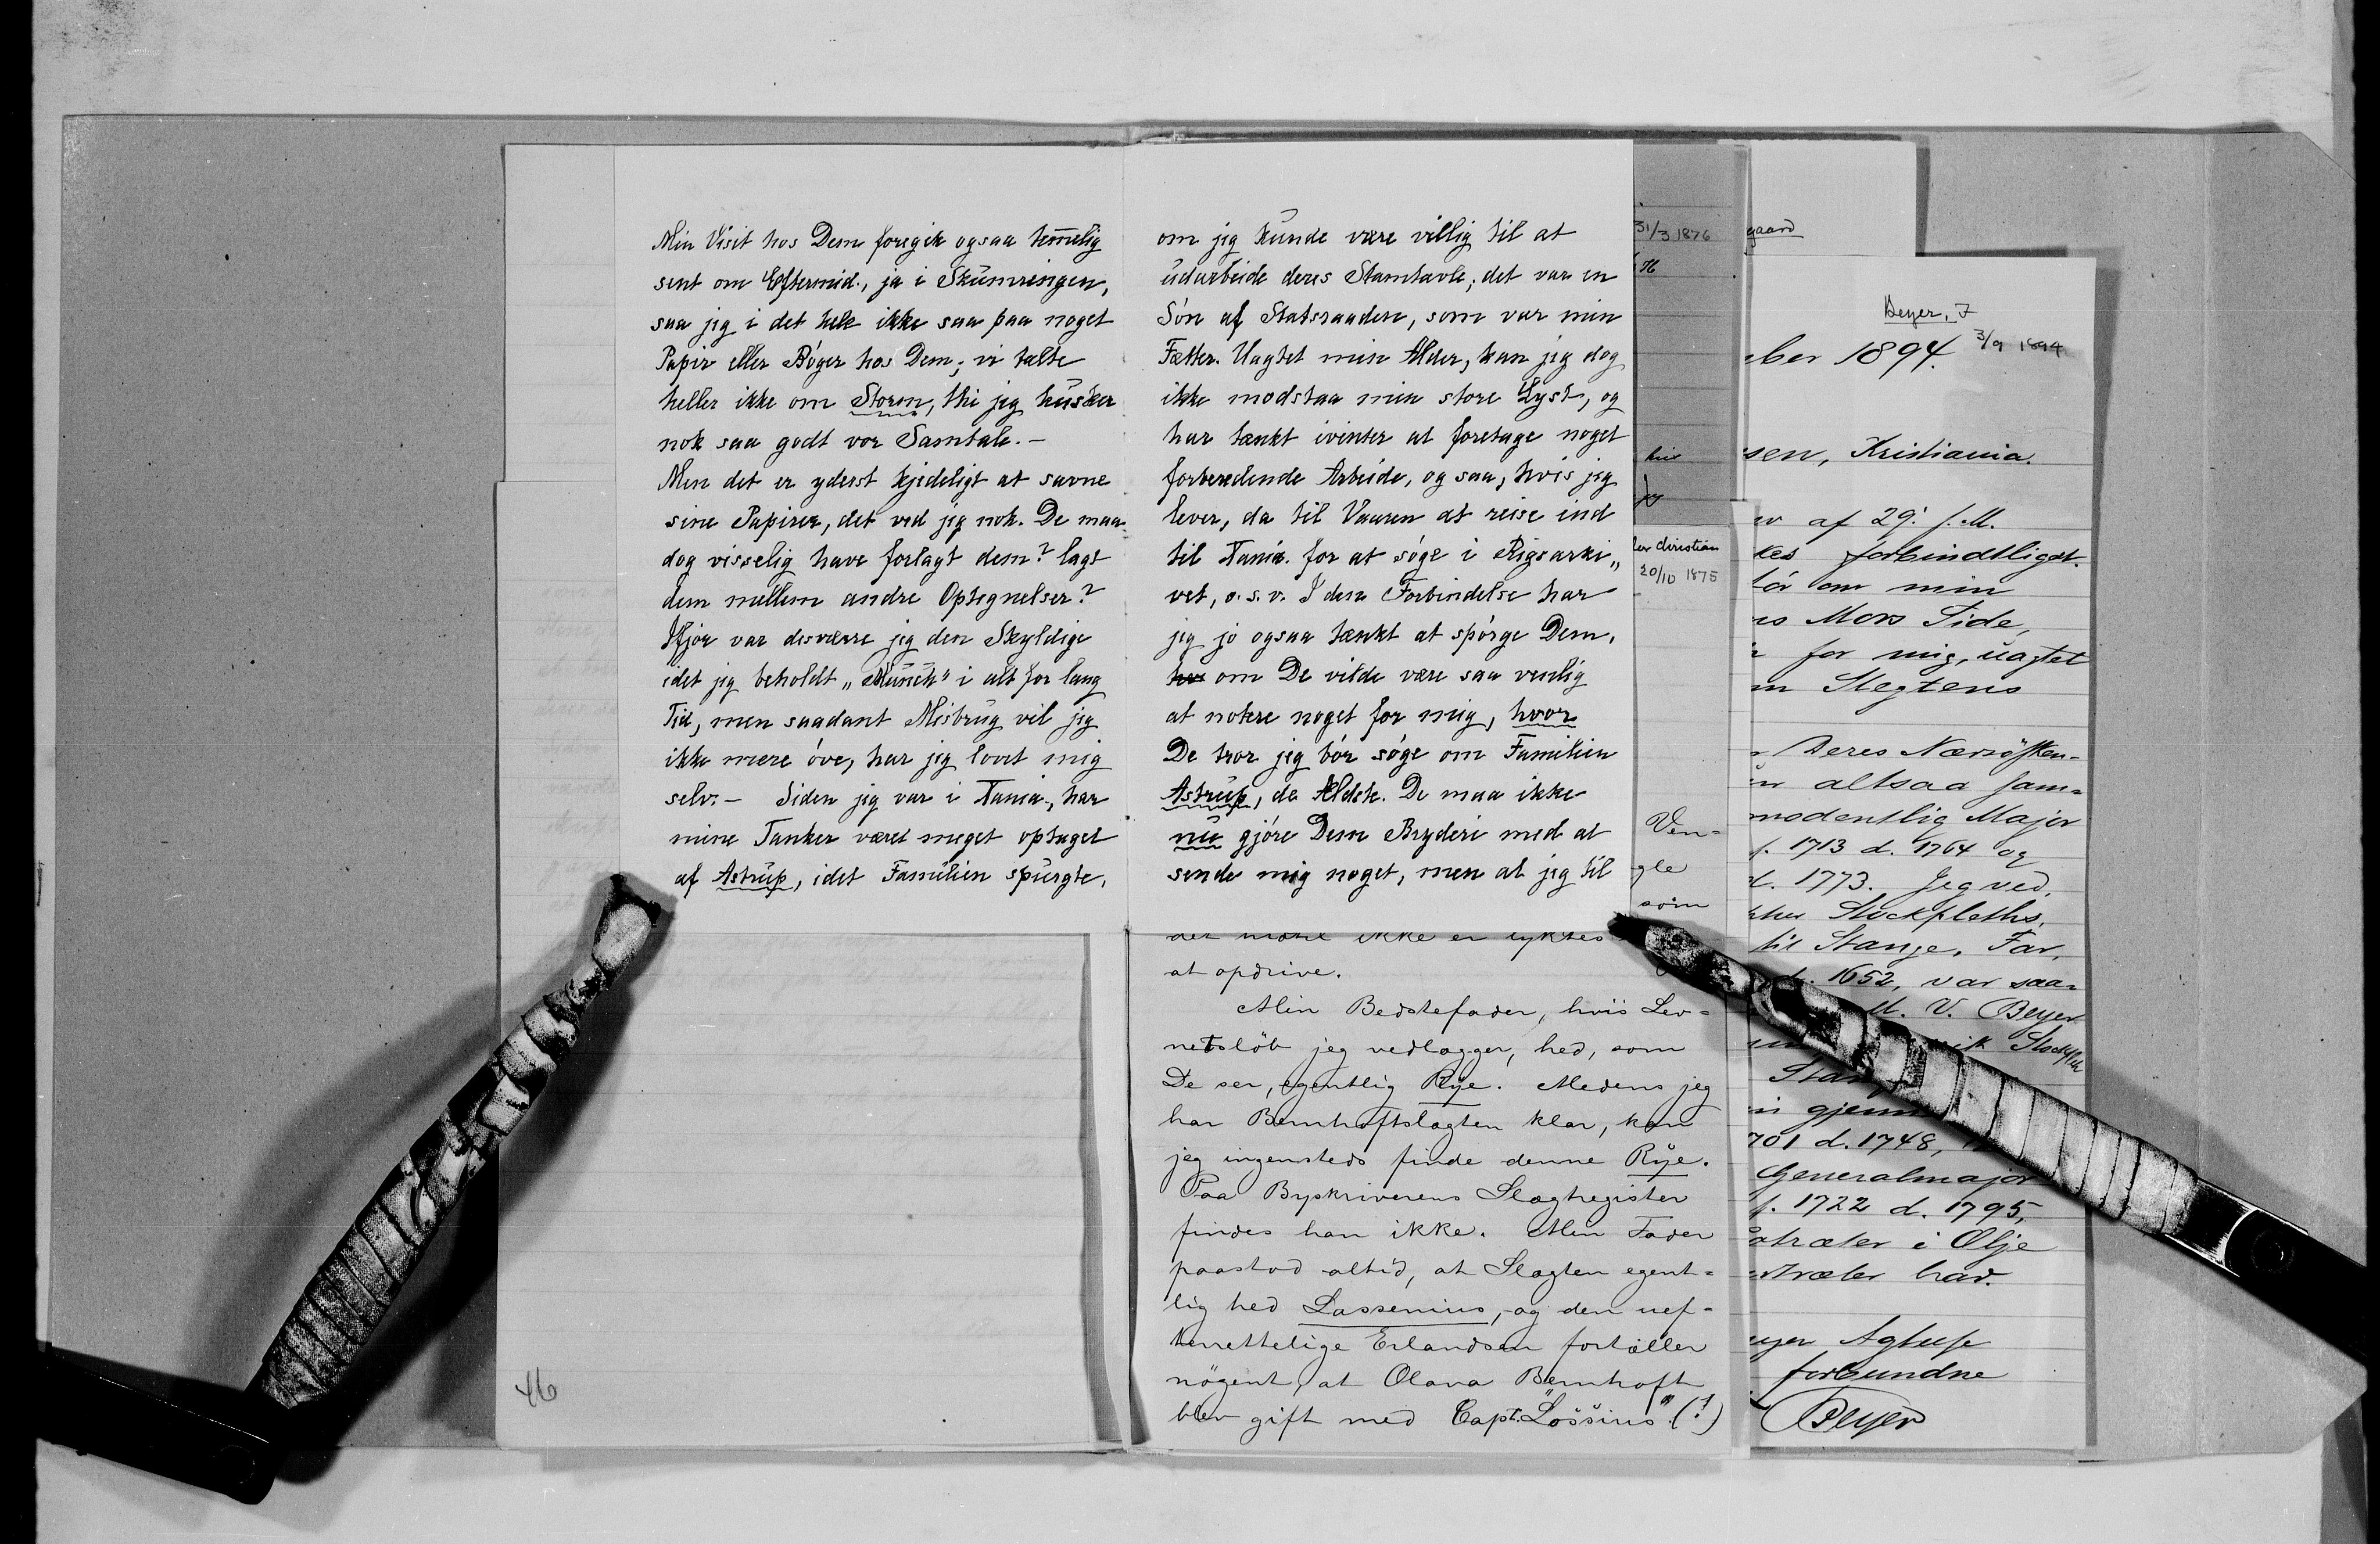 Min Visit hos Dem foregik ogsaa tem̅elig
sent om Eftermid., ja i Skumringen,
saa jeg i det hele ikke saa paa noget
Papir eller Bøger hos Dem; vi talte
heller ikke om Storm, thi jeg husker
nok saa godt vor Samtale. –
Men det er yderst kjedeligt at savne
sine Papirer, det ved jeg nok. De maa
dog visselig have forlagt dem? lagt
dem mellem andre Optegnelser?
Ifjor var desværre jeg den Skyldige
idet jeg beholdt „Munch“ i alt for lang
Tid, men saadant Misbrug vil jeg
ikke mere øve, har jeg lovet mig
selv. – Siden jeg var i Xania., har
mine Tanker været meget optaget
af Astrup, idet Familien spurgte,
om jeg kunde være villig til at
udarbeide deres Stamtavle; det var en
Søn af Statsraaden, som var min
Fætter. Uagtet min Alder, kan jeg dog
ikke modstaa min store Lyst, og
har tænkt ivinter at foretage noget
forberedende Arbeide, og saa, hvis jeg
lever, da til Vaaren at reise ind
til Xania. for at søge i Rigsarki„
vet, o.s.v. I den Forbindelse har
jeg jo ogsaa tænkt at spørge Dem,
om De vilde være saa venlig
at notere noget for mig, hvor
De tror jeg bør søge om Familien
Astrup, de Ældste. De maa ikke
nu gjøre Dem Bryderi med at
sende mig noget, men at jeg til
det ikke er lyktes
at opdrive.
Min Bedstefader, hvis Lev=
netsløb jeg vedlægger, hed, som
De ser, egentlig Rye. Medens jeg
har Bernhoftslægten klar, kan
jeg ingensteds finde denne Rye.
Paa Byskriverens Slægtregister
findes han ikke. Min Fader
paastod altid, at Slægten egent=
lig hed Lassenius, og den uef=
terrettelige Erlandsen fortæller
nøgent, at Olava Bernhoft
blev gift med Capt. „Lössius“ (?)
46
31/3 1876
76
hus
christian
20/10 1875
Ven=
gle
som
gaard
Beyer, F
ber 1894. 3/9 1894
sen, Kristiania.
af 29. f. M.
kes forbindtligst.
om min
Mors Side,
for mig, uagtet
Slegtens
Deres Næstsøsken-
altsaa sam=
modentlig Major
f. 1713 d. 1764 og
d. 1773. Jeg ved,
Stockfleths,
til Stange, Far,
1652, var saa=
M. V. Beyer
Stockfleth
gjenn
701 d. 1748,
Generalmajor
f. 1722 d. 1795,
træter i Olje
træter har.
Agtelse
forbundne
FBeyer